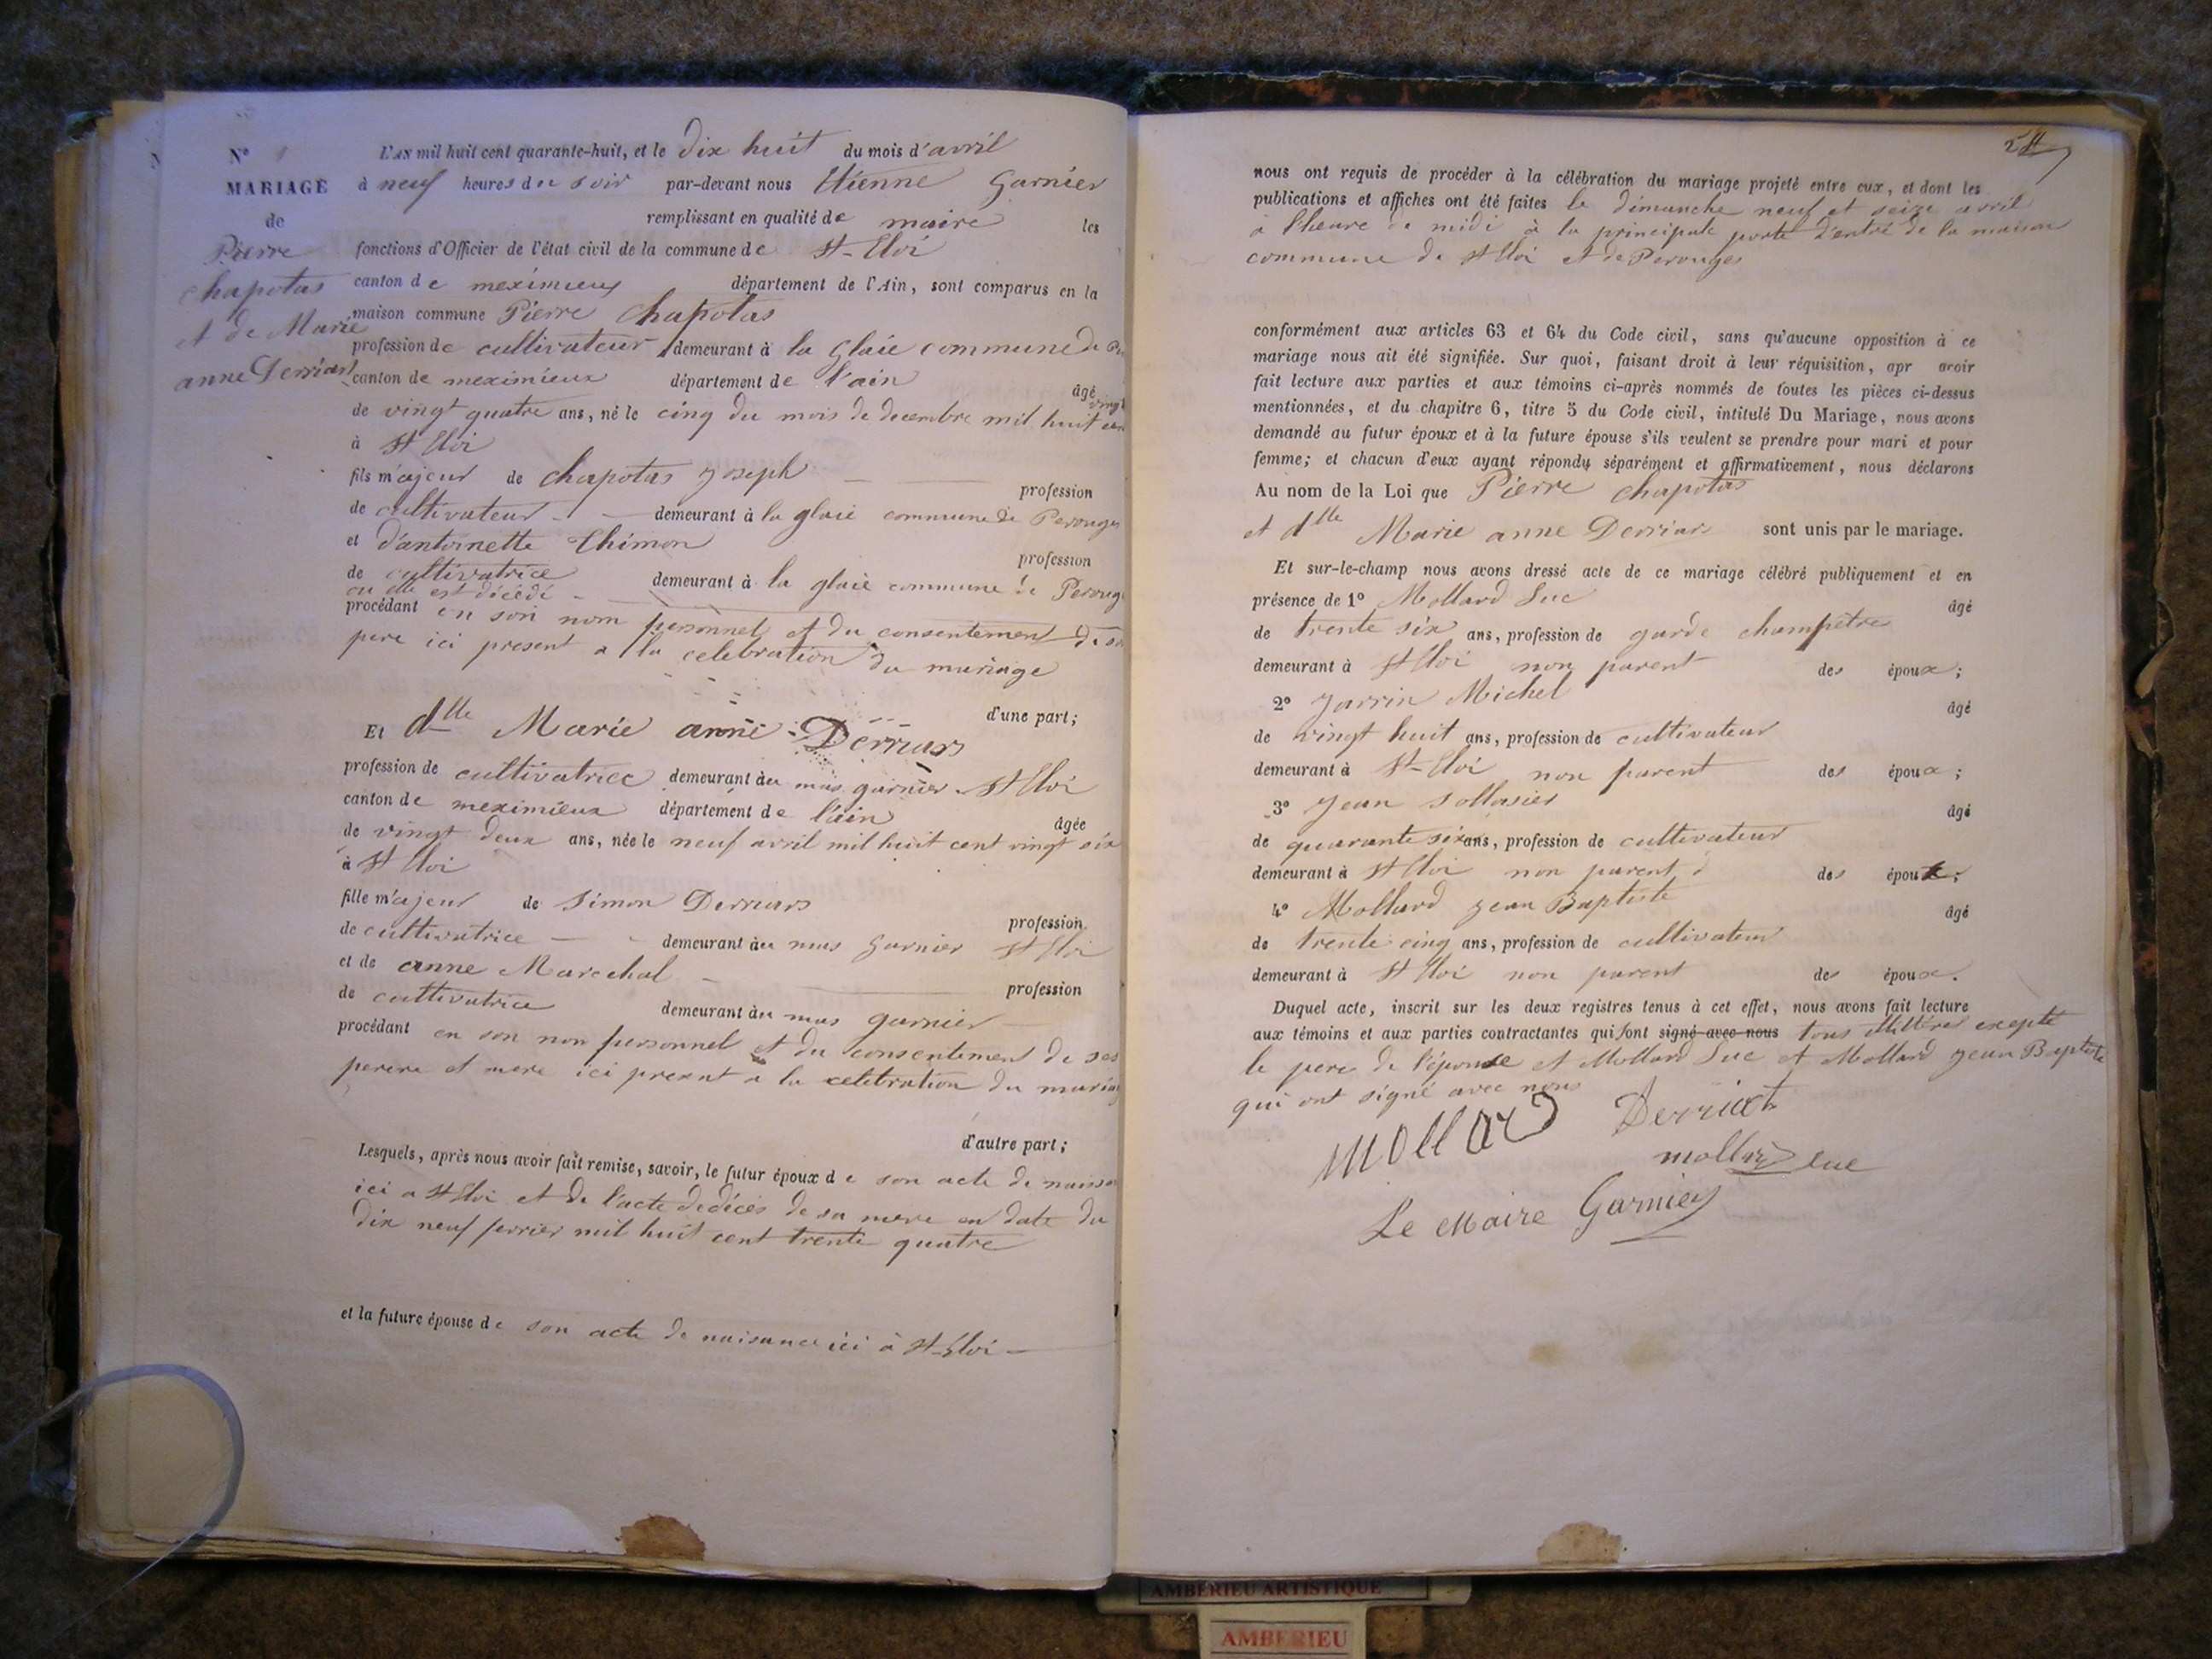 N°
MARIAGE
de
Pierre
chapotas
et de Marie
anne Derriars
L'AN mil huit cent quarante-huit, et le dix huit du mois d'avril
à neuf heures du soir par-devant nous Etienne Garnier
remplissant en qualité de maire les
fonctions d'Officier de l'état civil de la commune de St-Eloi
canton de meximieux département de l'Ain, sont comparus en la
maison commune Pierre Chapotas
profession de cultivateur demeurant à la glaie commune de
canton de meximieux département de l'ain âgé
de vingt quatre ans, né le cinq du mois de decembre mil huit cent vingt
à St Eloi
fils majeur de chapotas Joseph profession
de cultivateur demeurant à la glaie commune de Perouges
et d'antoinette Thimon profession
de cultivatrice demeurant à la glaie commune de Peroug
ou elle est décédé
procédant en son nom personnel et du consentement de
pere ici present a la celebration du mariage
d'une part;
Et dlle Marie anne Derriars
profession de cultivatrice demeurant au mas garnier St Eloi
canton de meximieux département de l'ain âgée
de vingt deux ans, née le neuf avril mil huit cent vingt six
à St Eloi
fille majeur de Simon Derriars profession
de cultivatrice demeurant au mas Garnier St Eloi
et de anne Marechal profession
de cultivatrice demeurant au mas garnier
procédant en son non personnel et du consentement de ses
perere et mere ici present a la celebration du mariag
d'autre part;
Lesquels, après nous avoir fait remise, savoir, le futur époux de son acte de naissa
ici a St Eloi et de l'acte de décès de sa mere en date du
dix neuf fevrier mil huit cent trente quatre
et la future épouse de son acte de naisance ici à St-Eloi
nous ont requis de procéder à la célébration du mariage projeté entre eux, et dont les
publications et affiches ont été faites le dimanche neuf et seize avril
a l'heure de midi à la principale porte d'entré de la maison
commune de St Eloi et de Perouges
conformément aux articles 63 et 64 du Code civil, sans qu'aucune opposition à ce
mariage nous ait été signifiée. Sur quoi, faisant droit à leur réquisition, apr avoir
fait lecture aux parties et aux témoins ci-après nommés de toutes les pièces ci-dessus
mentionnées, et du chapitre 6, titre 5 du Code civil, intitulé Du Mariage, nous avons
demandé au futur époux et à la future épouse s'ils veulent se prendre pour mari et pour
femme; et chacun d'eux ayant répondu séparément et affirmativement, nous déclarons
Au nom de la Loi que Pierre chapotas
et dlle Marie anne Derriars sont unis par le mariage.
Et sur-le-champ nous avons dressé acte de ce mariage célébré publiquement et en
présence de 1° Mollard Luc âgé
de trente six ans, profession de garde champêtre
demeurant à St Eloi non parent des époux;
2° Jarrin Michel âgé
de vingt huit ans, profession de cultivateur
demeurant à St-Eloi non parent des époux;
3° Jean Sollasier âgé
de quarante six ans, profession de cultivateur
demeurant à St Eloi non parent des époux;
4° Mollard Jean Baptiste âgé
de trente cinq ans, profession de cultivateur
demeurant à St Eloi non parent des époux.
Duquel acte, inscrit sur les deux registres tenus à cet effet, nous avons fait lecture
aux témoins et aux parties contractantes qui font signé avec nous tous illitéres excepté
le pere de l'épouse et Mollard Luc et Mollard Jean Baptiste
qui ont signé avec nous
Mollard Derriat
mollard luc
Le Maire Garnier
AMBERIEU ARTISTIQUE
AMBERIEU